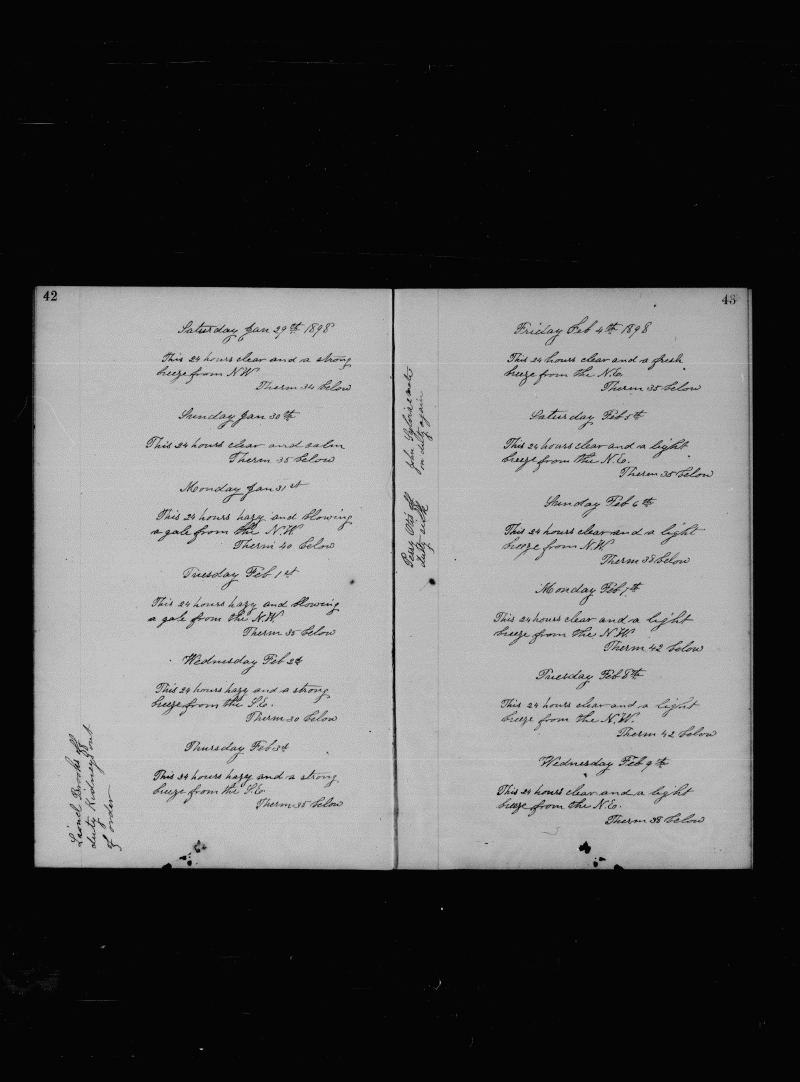 42
Saturday Jan 29th 1898
This 24 hours clear and a strong
breeze from N.W
Therm 34 below
Sunday Jan 30th
This 24 hours clear and calm
Therm 35 below
Monday Jan 31st
This 24 hours hazy and blowing
a gale from the N.W
Therm 40 below
Tuesday Feb 1st
This 24 hours hazy and blowing
a gale from the N.W.
Therm 35 below
Wednesday Feb 2d
This 24 hours hazy and a strong
breeze from the S.E.
Therm 30 below
Thursday Feb 3d
This 24 hours hazy and a strong
breeze from the S.E.
Therm 35 below
Lionel Brooks off
duty Kidneys out
of order
43
Friday Feb 4th 1898
This 24 hours clear and a fresh
breeze from the N.E.
Therm 35 below
Saturday Feb 5th
This 24 hours clear and a light
breeze from the N.E.
Therm 35 below
Sunday Feb 6th
This 24 hours clear and a light
breeze from N.W.
Therm 38 below
Monday Feb 7th
This 24 hours clear and a light
breeze from the N.W.
Therm 42 below
Tuesday Feb 8th
This 24 hours clear and a light
breeze from the N.W.
Therm 42 below
Wednesday Feb 9th
This 24 hours clear and a light
breeze from the N.E.
Therm 38 below
John
on duty again
off
duty sick